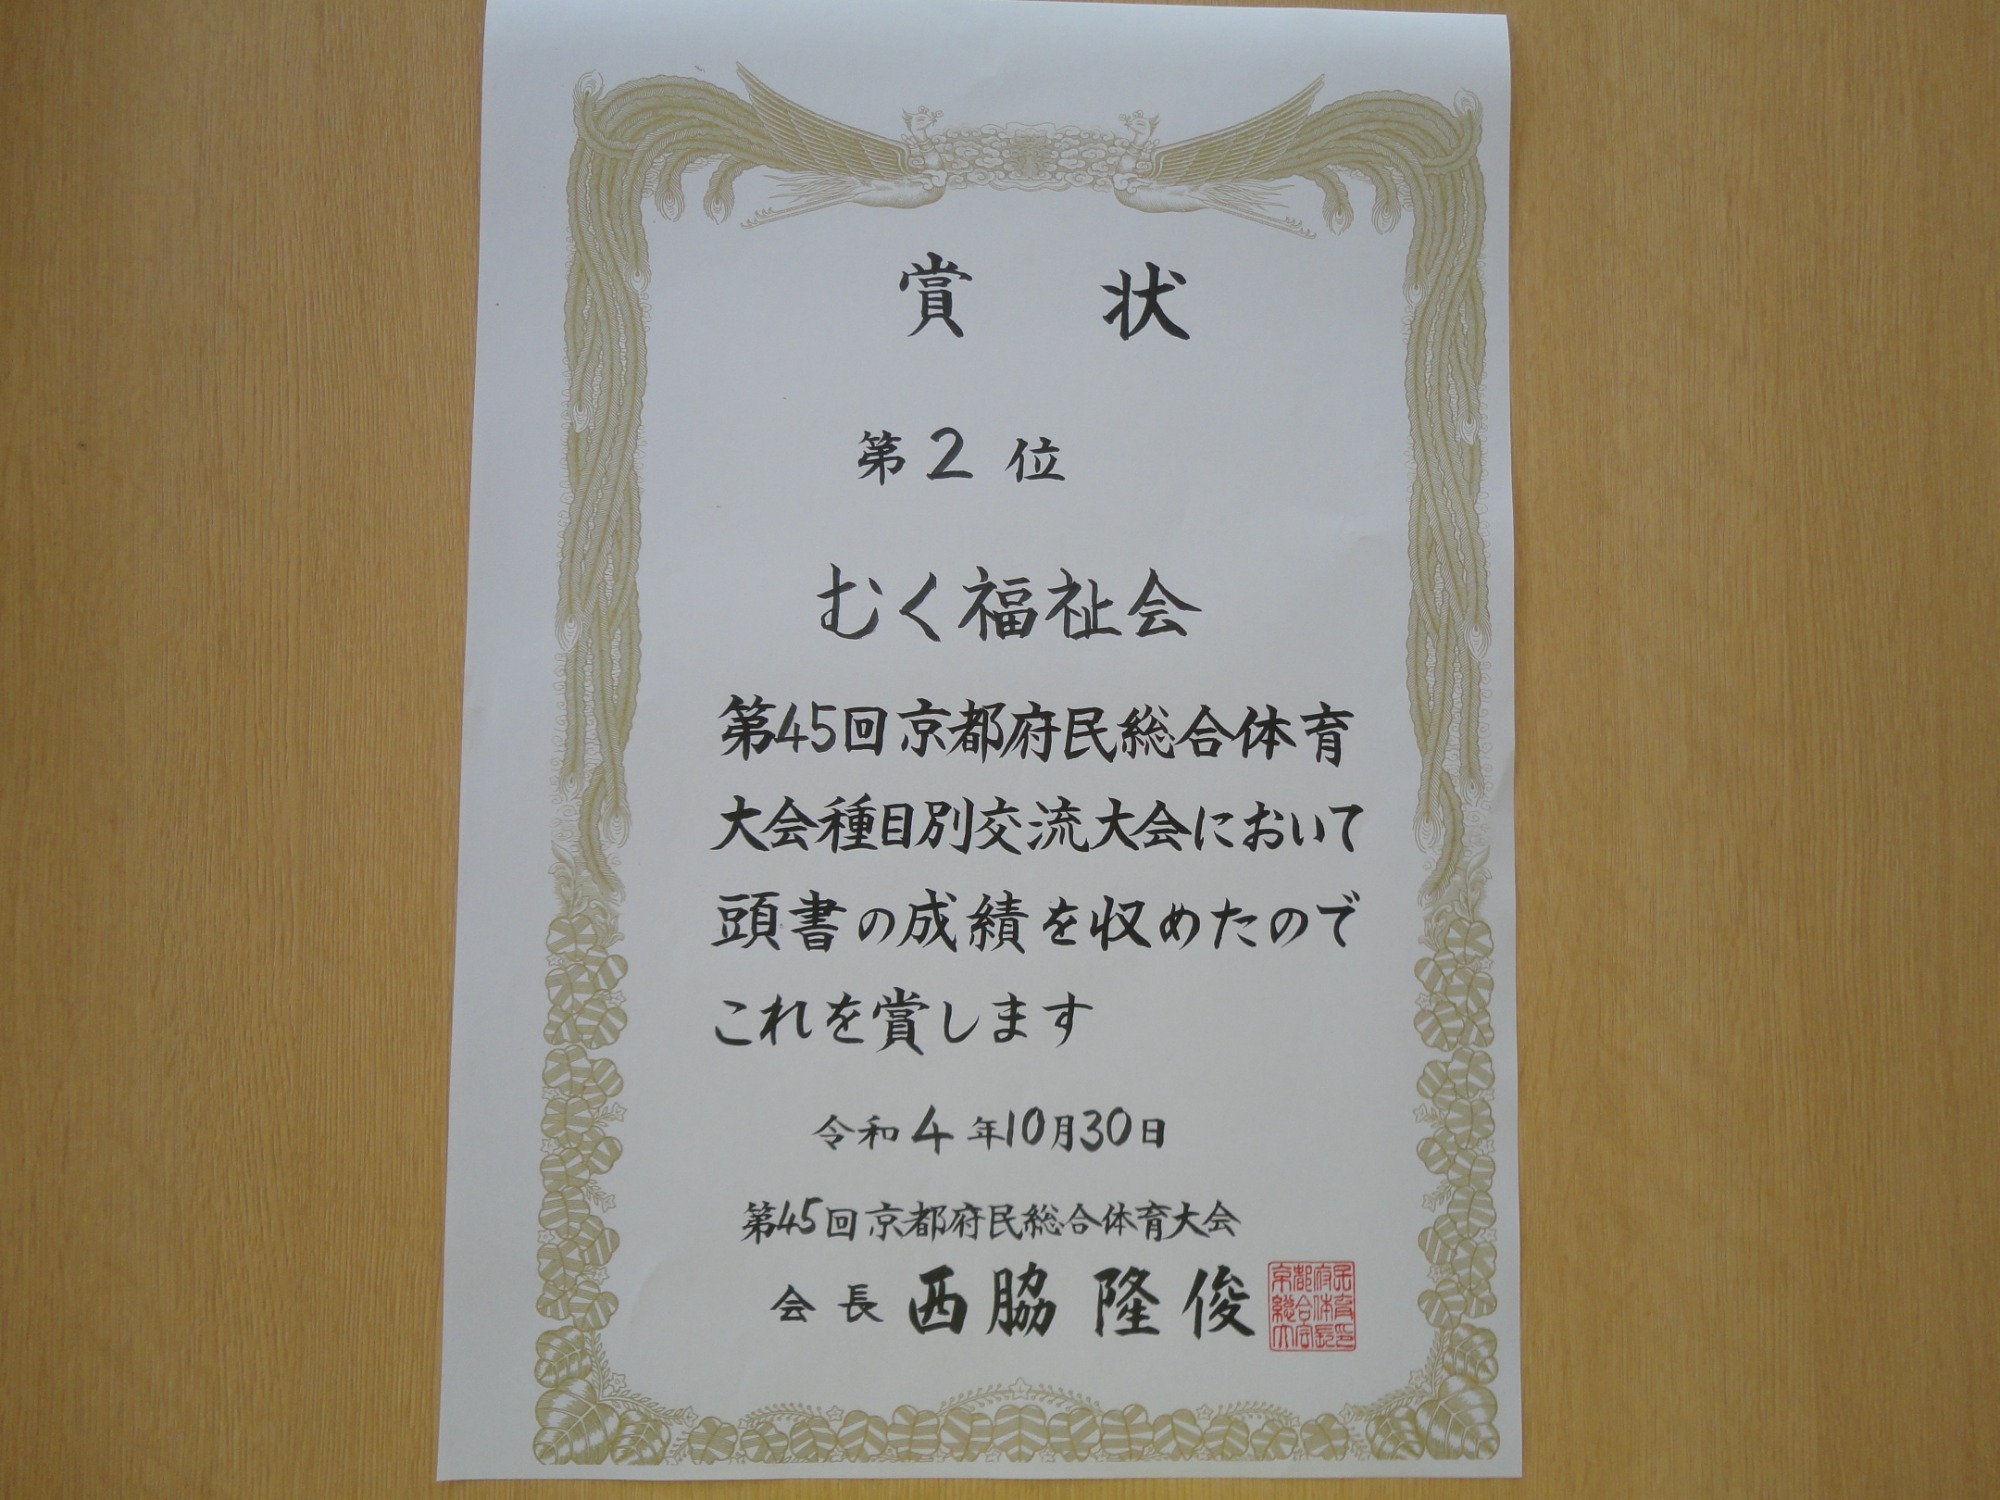 賞状
第2位
むく福祉会
第45回京都府民総合体育
大会種目別交流大会において
頭書の成績を収めたので
これを賞します
令和4年10月30日
第45回京都府民総合体育大会
会長 西脇隆俊